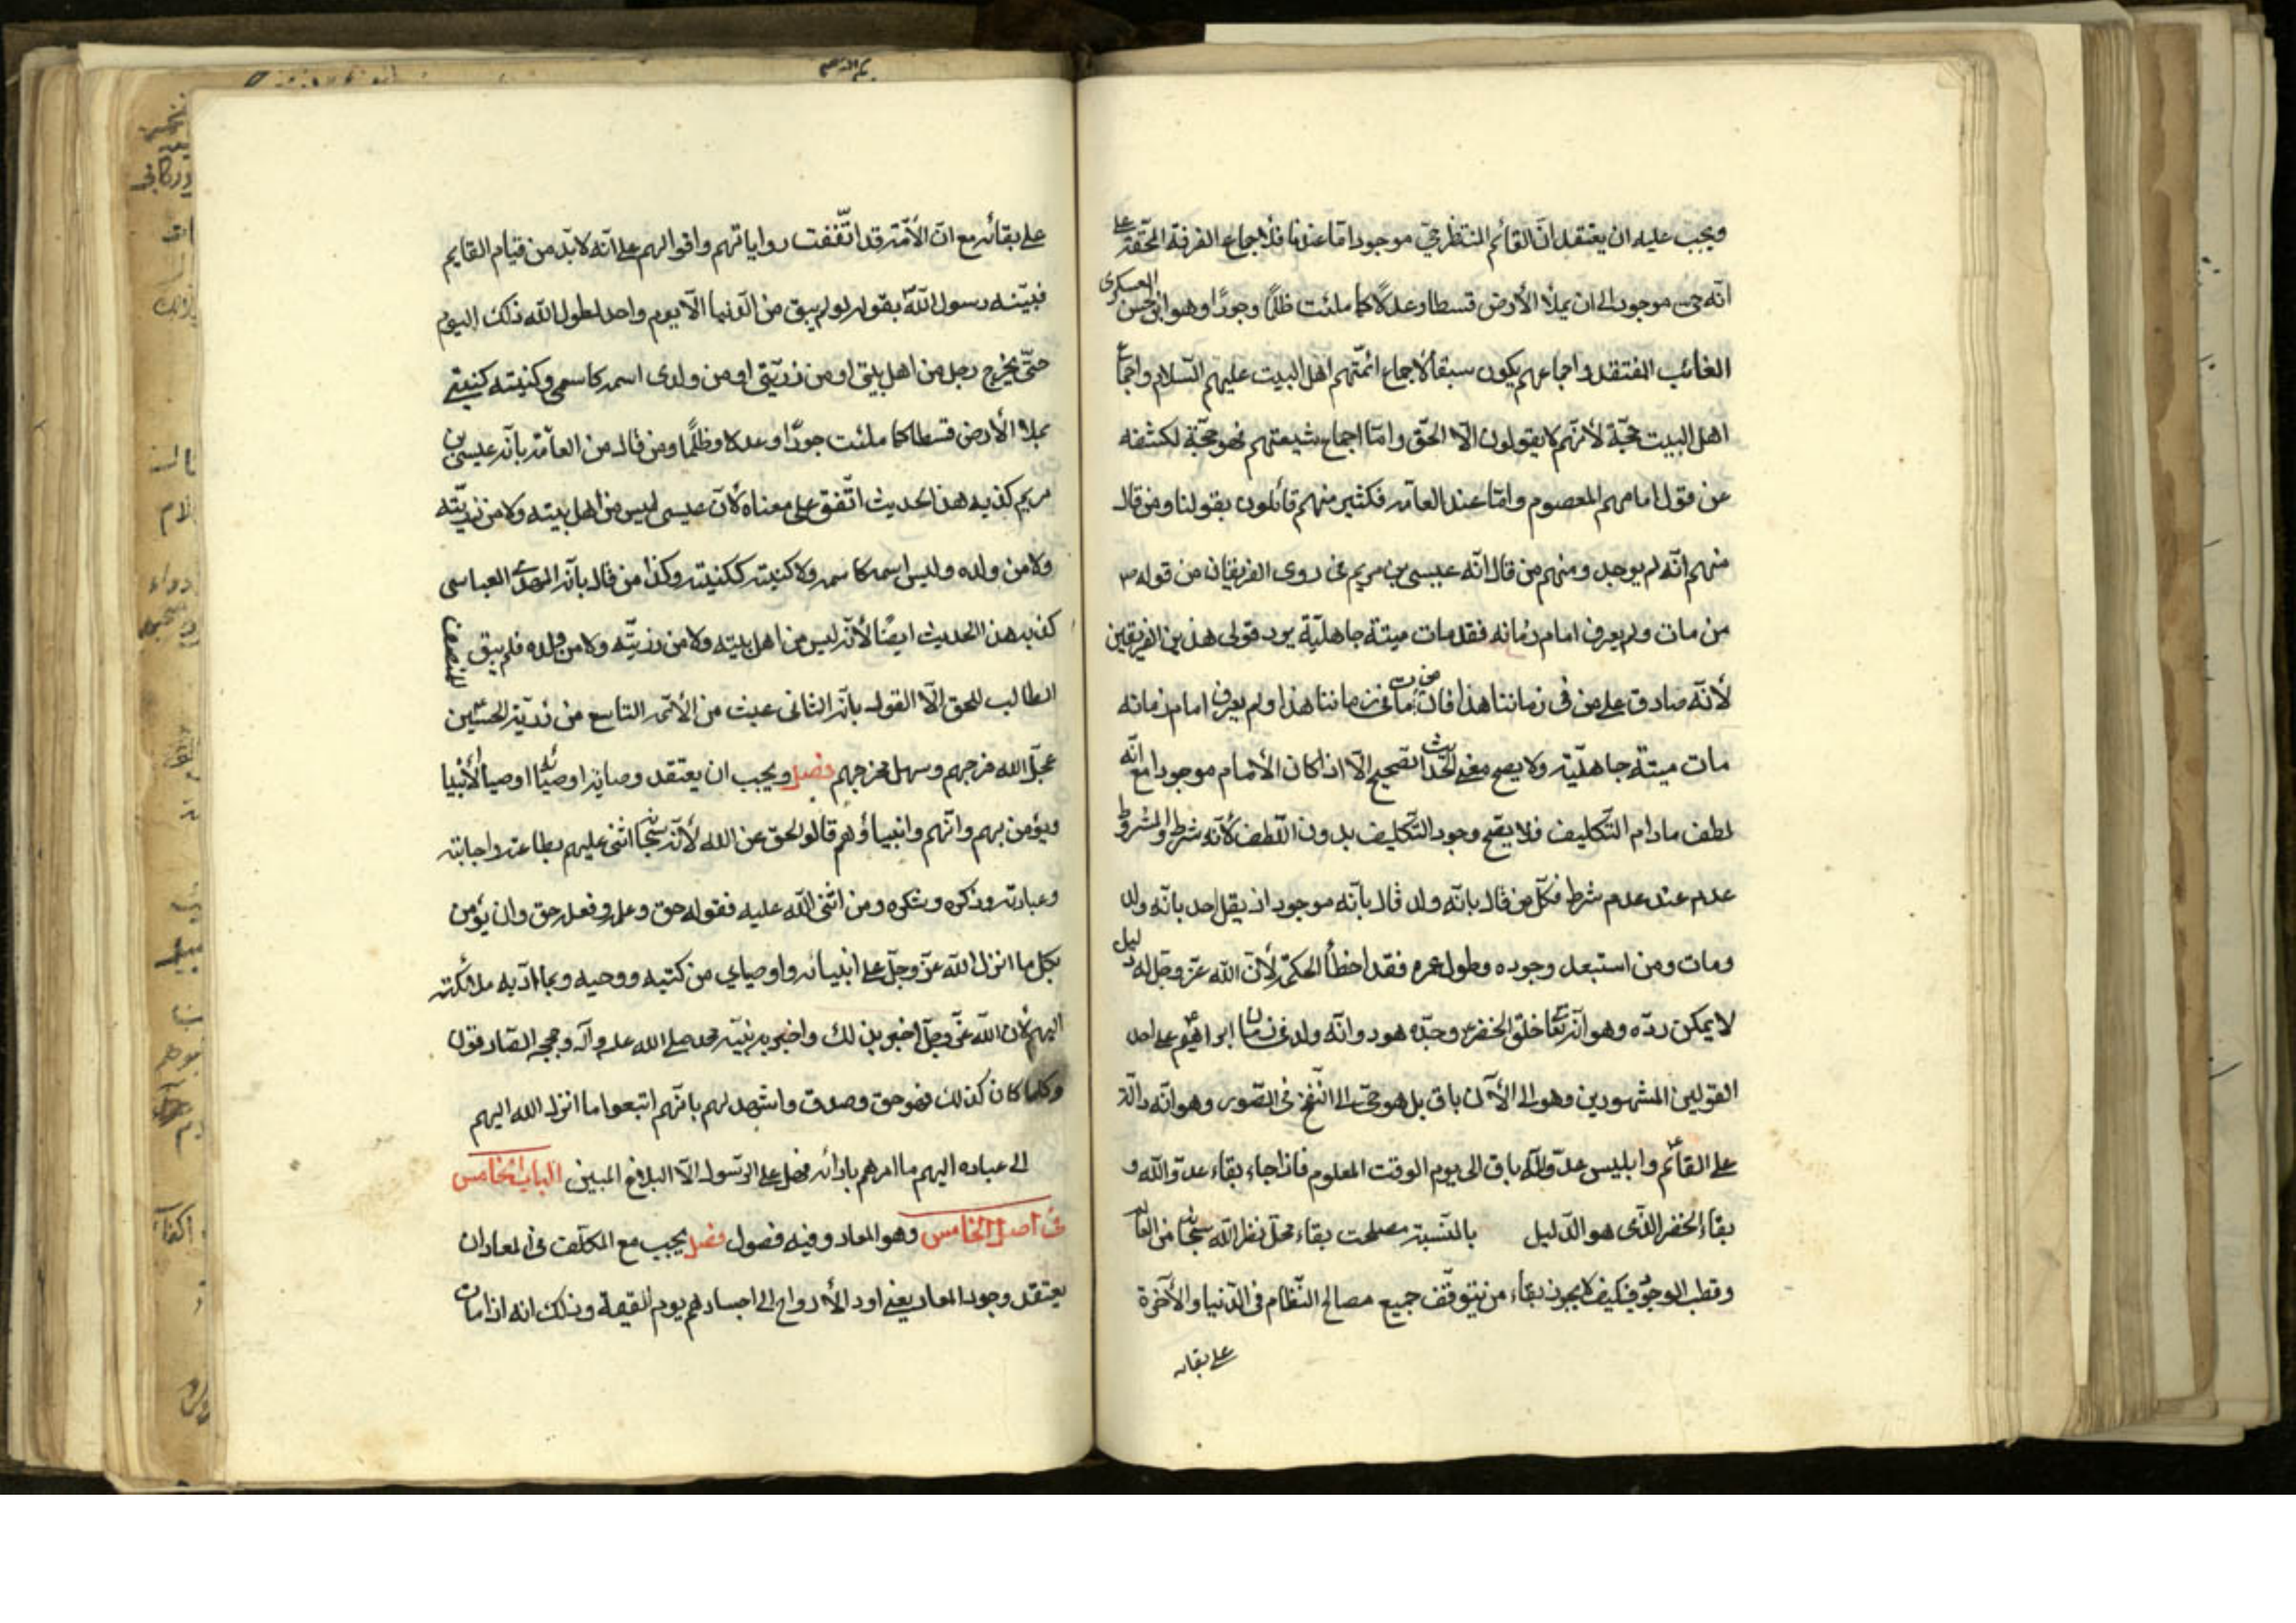 ويجب عليه ان يعتقد انّ القائم المنتظر حيّ موجود امّا عندنا فلاجماع الفرقة المحقّة على
انّه حى موجود الى ان يملأ الأرض قسطا وعدلاً كما ملئت ظلمًا وجورًا وهو ابن الحسن العسكرى
الغائب المفتقد واجماعهم يكون سبقاً لاجماع ائمّتهم اهل البيت عليهم السّلام واجماع
اهل البيت حجّة لأنّهم لا يقولون الّا الحقّ وامّا اجماع شيعتهم فهو حجّة لكشفه
عن قول امامهم المعصوم وامّا عند العامّه فكثير منهم قائلون بقولنا ومن قال
منهم انّه لم يوجد ومنهم من قال انّه عيسى بن مريم روى الفريقان من قوله ص
من مات ولم يعرف امام زمانه فقد مات ميتة جاهليّة يرد قولى هذين الفريقين
لأنّه صادق على من فى زماننا هذا فان من مات فى زماننا هذا ولم يعرف امام زمانه
مات ميتة جاهليّة ولا يصح معنى الحديث الصحيح الّا اذا كان الأمام موجودا مع انّه
لطف مادام التّكليف فلا يصحّ وجود التّكليف بدون اللّطف لأنّه شرط والمشروط
عدم عند عدم شرط فكلّ من قال بانّه ولد قال بأنّه موجود اذ يقل احد بانّه ولد
ومات ومن استبعد وجوده وطول عمره فقد اخطأ الحكمة لأنّ الله عزّ وجل له دليل
لا يمكن ردّه وهو انّه تعا خلق الخضر وجدّه هود وانّه ولد فى زمان ابراهيم على احد
القولين المشهورين وهو الى الآن باق بل هو حيّ الى النّفخ فى الصّور وهو انّه دالّة
على القائم وابليس عدوّ الله باق الى يوم الوقت المعلوم فاذا جاء بقاء عدوّ الله و
بقاء الخضر الذّى هو الدّليل بالنّسبة مصلحت بقاء محلّ نظر الله سبحانه من العالم
وقطب الوجود فكيف لا يجوز بقاء من يتوقّف جميع مصالح النّظام فى الدّنيا والأخرة
على بقائه
على بقائه مع انّ الأمّة قد اتّفقت رواياتهم واقوالهم على انّه لابدّ من قيام القايم
فبيّنه رسول اللّه بقوله لو لم يبق من الدّنيا الّا يوم واحد لطول الله ذلك اليوم
حتّى يخرج رجل من اهل بيتى او من ذريّتى او من ولدى اسمه كاسمى وكنيته كنيتى
يملأ الأرض قسطا كما ملئت جورًا وعدلا وظلمًا ومن قال من العامّة بانّه عيسى بن
مريم كذبه هذا الحديث اتّفق على معناه لأنّ عيسى ليس من اهل بيته ولا من ذريّته
ولا من ولده وليس اسمه كاسمه ولا كنيته ككنيته وكذا من قال بانّه المهدى العباسى
كذبه هذا الحديث ايضًا لأنّه ليس من اهل بيته ولا من ذريّته ولا من ولده فلم يبق للمنصف
الطالب للحق الّا القول بانّه الثانى عشر من الأئمّه التاسع من ذريّة الحسين
عجّل الله فرجهم وسهل مخرجهم فصل ويجب ان يعتقد وصاية اوصيائه اوصيا الأنبيا
ويؤمن بهم وانّهم وانبياؤهم قالو الحقّ عن الله لأنّه سبحانه اثنى عليهم بطاعته واجابته
وعبادته وذكره وشكره ومن اثنى اللّه عليه فقوله حق وعمله وفعله حق وان يؤمن
بكل ما انزل اللّه عزّ وجلّ على انبيائه واوصيائى من كتبه ووحيه وبما ملائكته
اليهم لأن اللّه عزّ وجلّ اخبر بذلك واخبر به نبيّه محمد صلى الله عليه وآله وحججه
وكلما كان كذلك فهو حق وصدق واشهد لهم بانّهم اتبعوا ما انزل الله اليهم
الى عباده اليهم ما امرهم بادائه فهل على الرّسول الّا البلاغ المبين الباب الخامس
فى اصل الخامس وهو المعاد وفيه فصول فصل يجب مع المكلّف فى المعاد ان
يعتقد وجود المعاد يعنى اود الأرواح الى اجسادهم يوم القيمة وذلك انه اذا مات